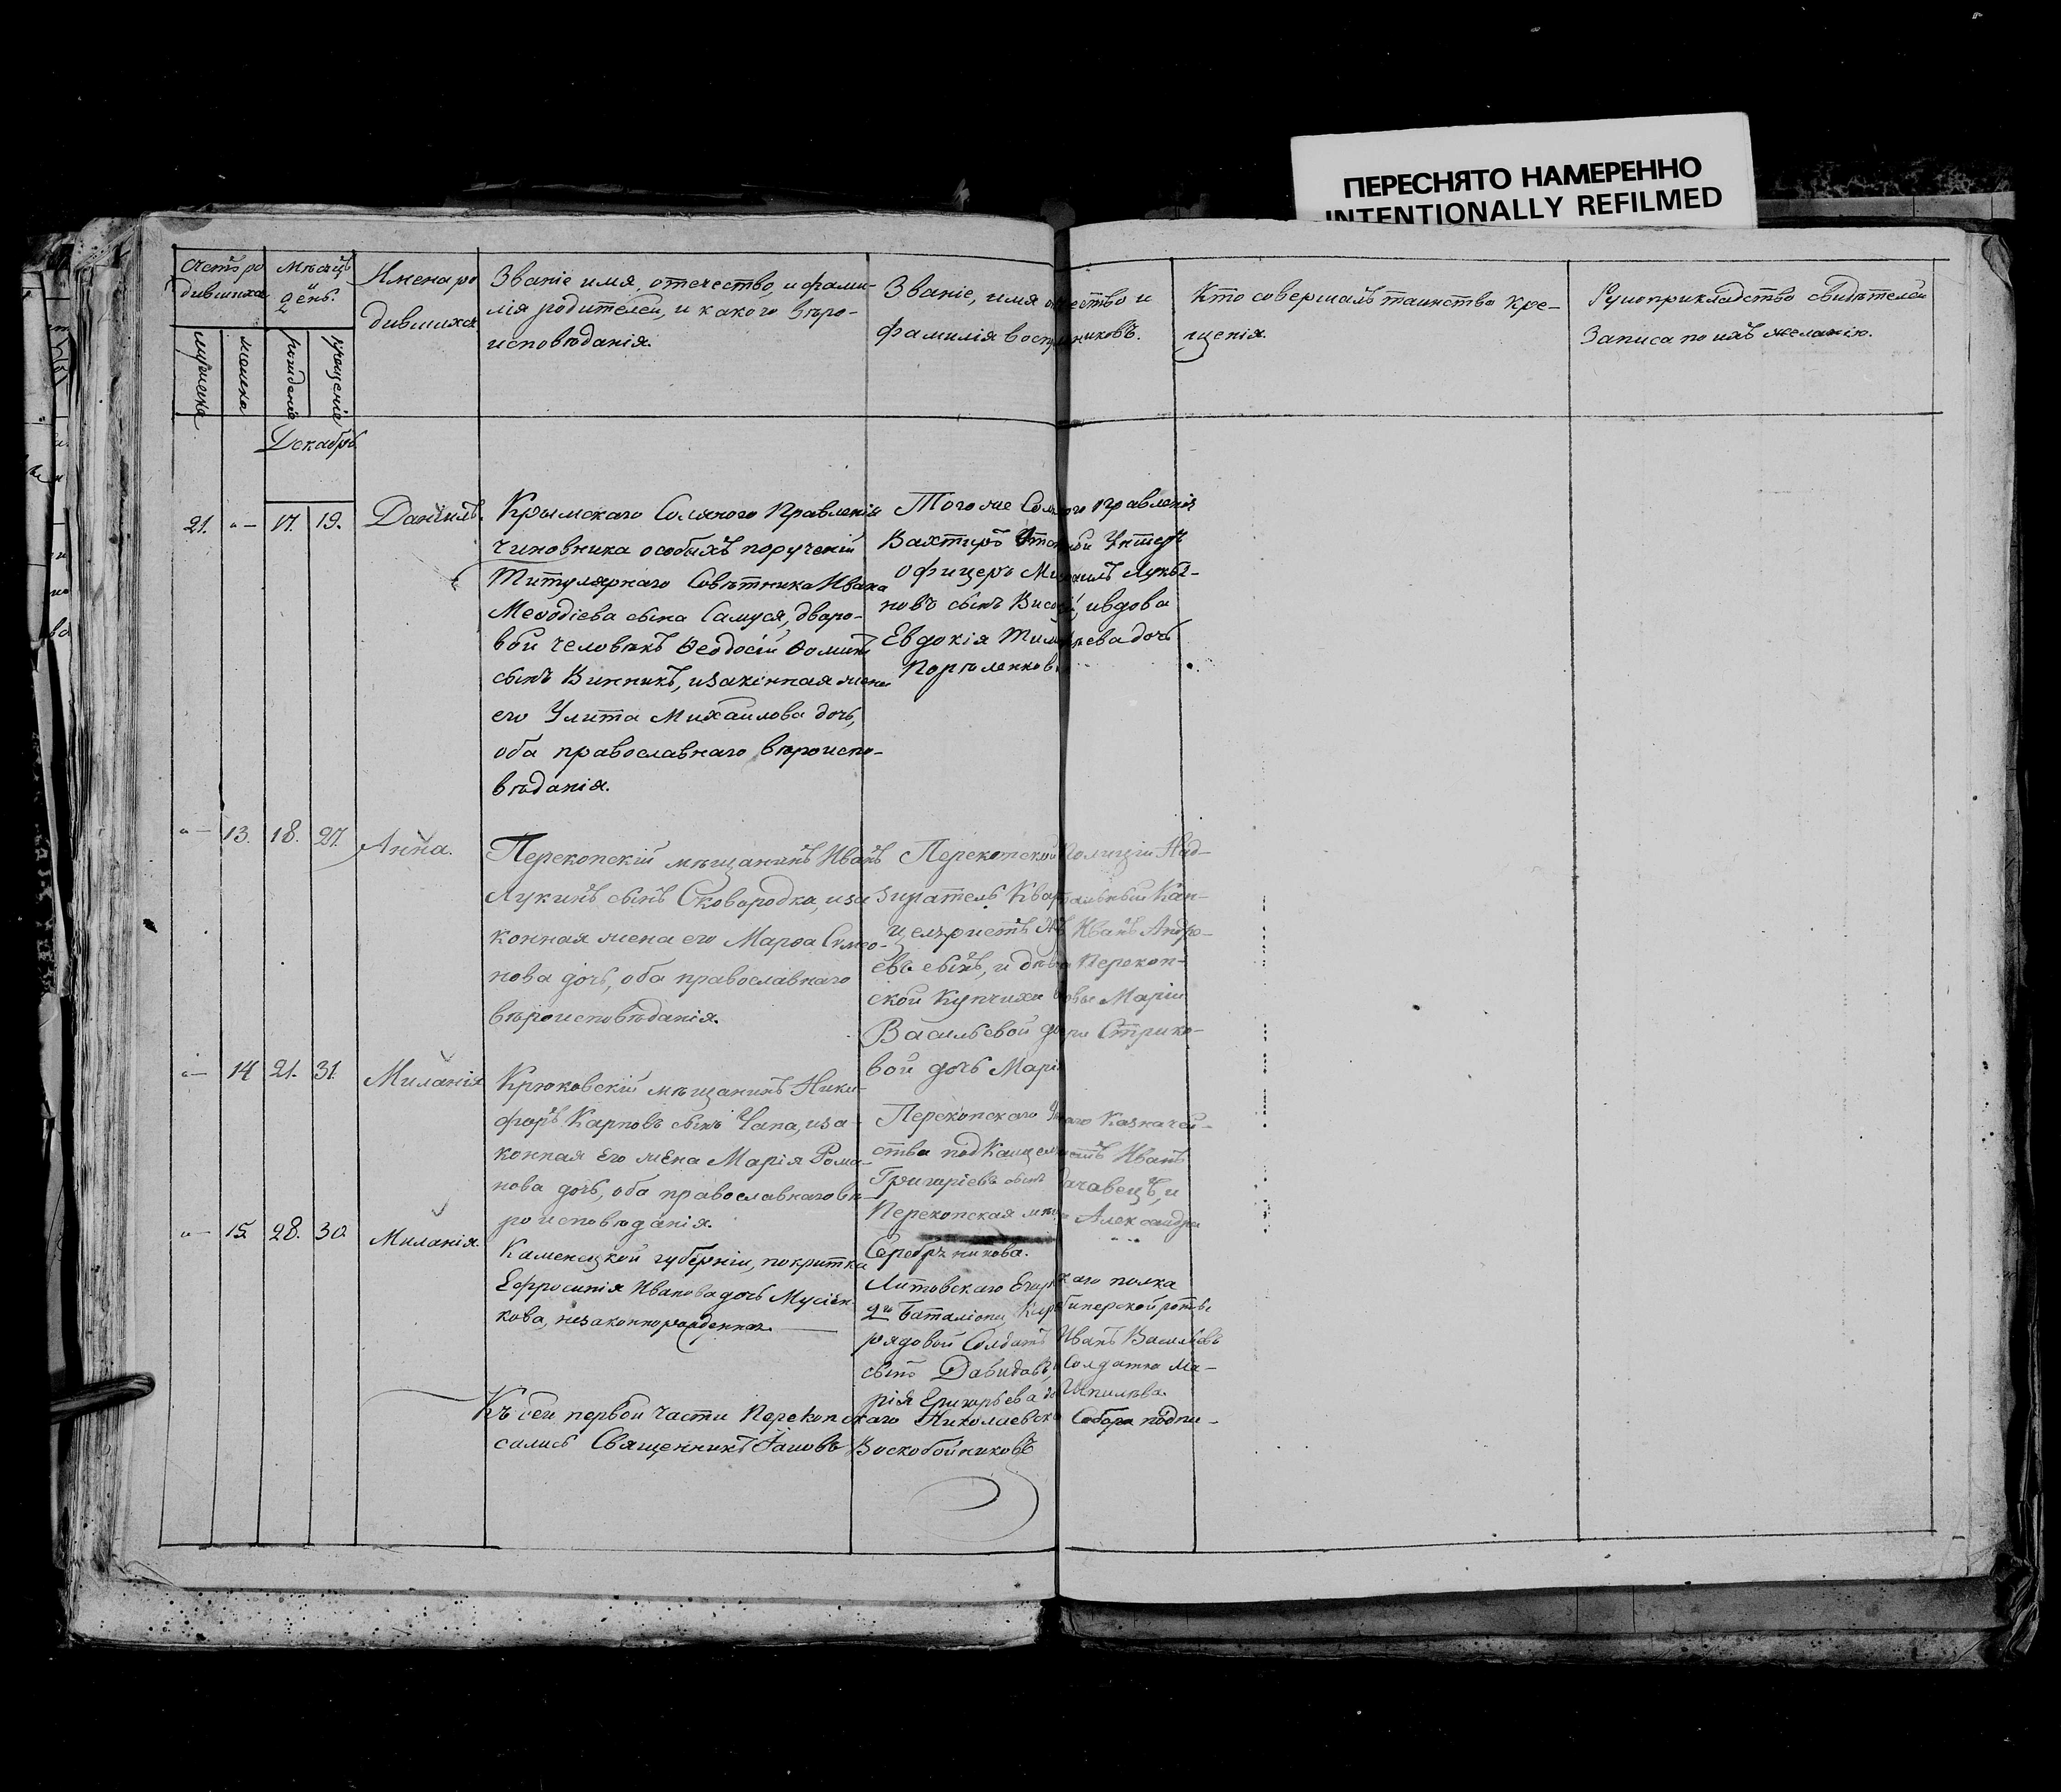 ПЕРЕСНЯТО НАМЕРЕННО
INTENTIONALLY REFILMED
Счетъ ро
дившихся
Мѣсяцъ
и
день.
Имена ро
дившихся
Званіе имя, отечество, и фами-
лія родителей, и какого вѣро-
исповѣданія.
Званіе, имя отчество и
фамилія воспріемниковъ.
Кто совершалъ таинство кре-
щенія.
Рукоприкладство свидѣтелей
записа по ихъ желанію.
мужеска
женска
рожденіе
крещеніе
Декабрь
21. "- 17. 19. Даніилъ.
Крымскаго Солянаго Правленія
чиновника особыхъ порученій
Титулярнаго Совѣтника Ивана
Меѳодіева сына Самуся, дворо-
вой человѣкъ Ѳеодосій Ѳоминъ
сынъ Винникъ, изаконная жена
его Улита Михаилова дочь,
оба православнаго вѣроиспо-
вѣданія.
Того же Соляного Правленія
Вахтиръ Унтеръ
офицеръ Михаилъ Лукья-
новъ сынъ ивдова
Евдокія дочь
"- 13. 18. 27. Анна.
Перекопскій мѣщанинъ Иванъ
Лукинъ сынъ Сковородка, иза
конная жена его Марѳа Симео-
нова дочь, оба православнаго
вѣроисповѣданія.
Перекопской Полиціи Над-
зиратель Квартальный Кан-
целяристъ Иванъ Андре-
евъ сынъ, и Перекоп-
ской Купчихи вдовы Маріи
Васильевой дочери Стрико-
вой дочь Марія
"- 14 21. 31. Миланія
Крюковскій мѣщанинъ Ники-
форъ Карповъ сынъ Чапа, иза-
конная Его жена Марія Рома-
нова дочь, оба православнаго вѣ-
роисповѣданія.
Перекопскаго Казначей-
ства подКанцеляристъ Иванъ
Григоріевъ сынъ и
Перекопская Александра
Серебряникова.
"- 15. 28. 30. Миланія.
Каменецкой губерніи, покритка
Ефросинія Иванова дочь Мусіен-
кова, незаконнорожденная.
Литовскаго Егерскаго полка
2го Баталіона Карабинерской роты
рядовой Солдатъ Иванъ Васильевъ
сынъ Давидовъ, и Солдатка Ма-
рія Григорьева
Къ сей первой части Перекопскаго Николаевскаго Собора подпи-
сались Священникъ Іаковъ Воскобойниковъ